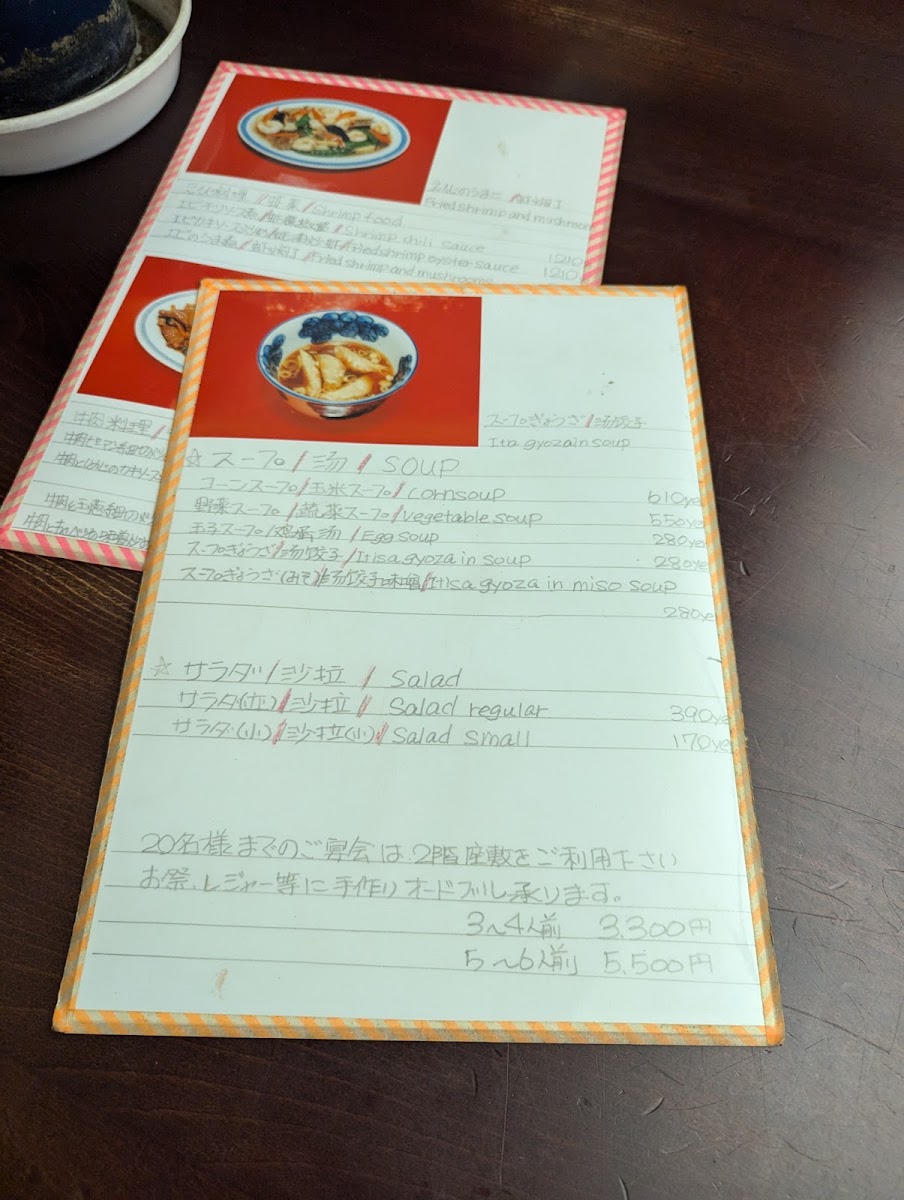 えびのうま煮 / 虾火焖丁
Fried shrimp and mushroom
えび料理 / 虾菜 / Shrimp food
エビチリソース煮 / Shrimp chili sauce
エビカキソース / Fried shrimp oyster sauce 1210
エビのうま煮 / 虾火焖丁 / Fried shrimp and mushrooms 1210
牛肉料理 /
スープぎょうざ / 汤饺子
It is a gyoza in soup
☆ スープ / 汤 / SOUP
コーンスープ / 玉米スープ / Cornsoup 610ye
野菜スープ / 蔬菜スープ / Vegetable soup 550ye
玉子スープ / 鸡蛋汤 / Egg soup 280ye
スープぎょうざ / 汤饺子 / It is a gyoza in soup 280ye
スープぎょうざ(みそ) / 汤饺子味噌 / It is a gyoza in miso soup
280ye
☆ サラダ / 沙拉 / Salad
サラダ(並) / 沙拉 / Salad regular 390ye
サラダ(小) / 沙拉(小) / Salad Small 170ye
20名様までのご宴会は、2階座敷をご利用下さい
お祭、レジャー等に手作りオードブル承ります。
3〜4人前 3,300円
5〜6人前 5,500円